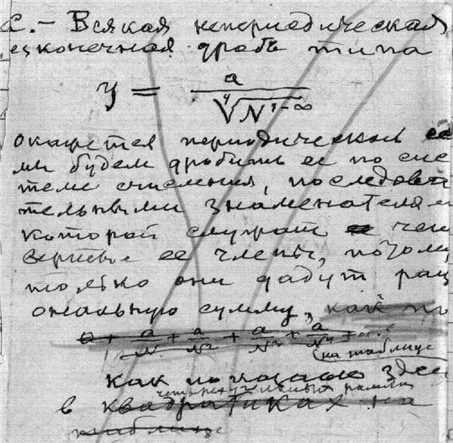 С. – Всякая непериодическая
есконечная дробь типа
y = a / ⁴√N¹⁻∞
окажется периодической
ми будем дробить ее по сис
теме счисления, последова
тельными знаменателями
которой служат чет
вертые ее члены, потому
только они дадут рац
ональную сумму, как
a + a/N + a/N² + a/N³ + a/N⁴
(на таблице
как показано здесь
четырехчленных
в квадратиках на
таблице